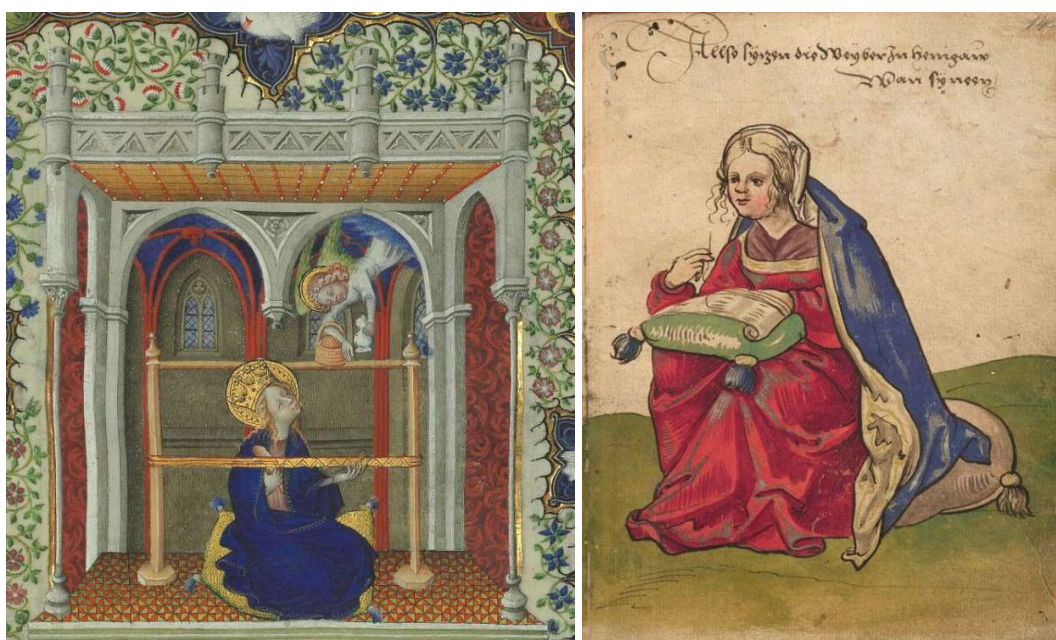 Allso sytzen die Weyber In henigaw
Wan sy neen